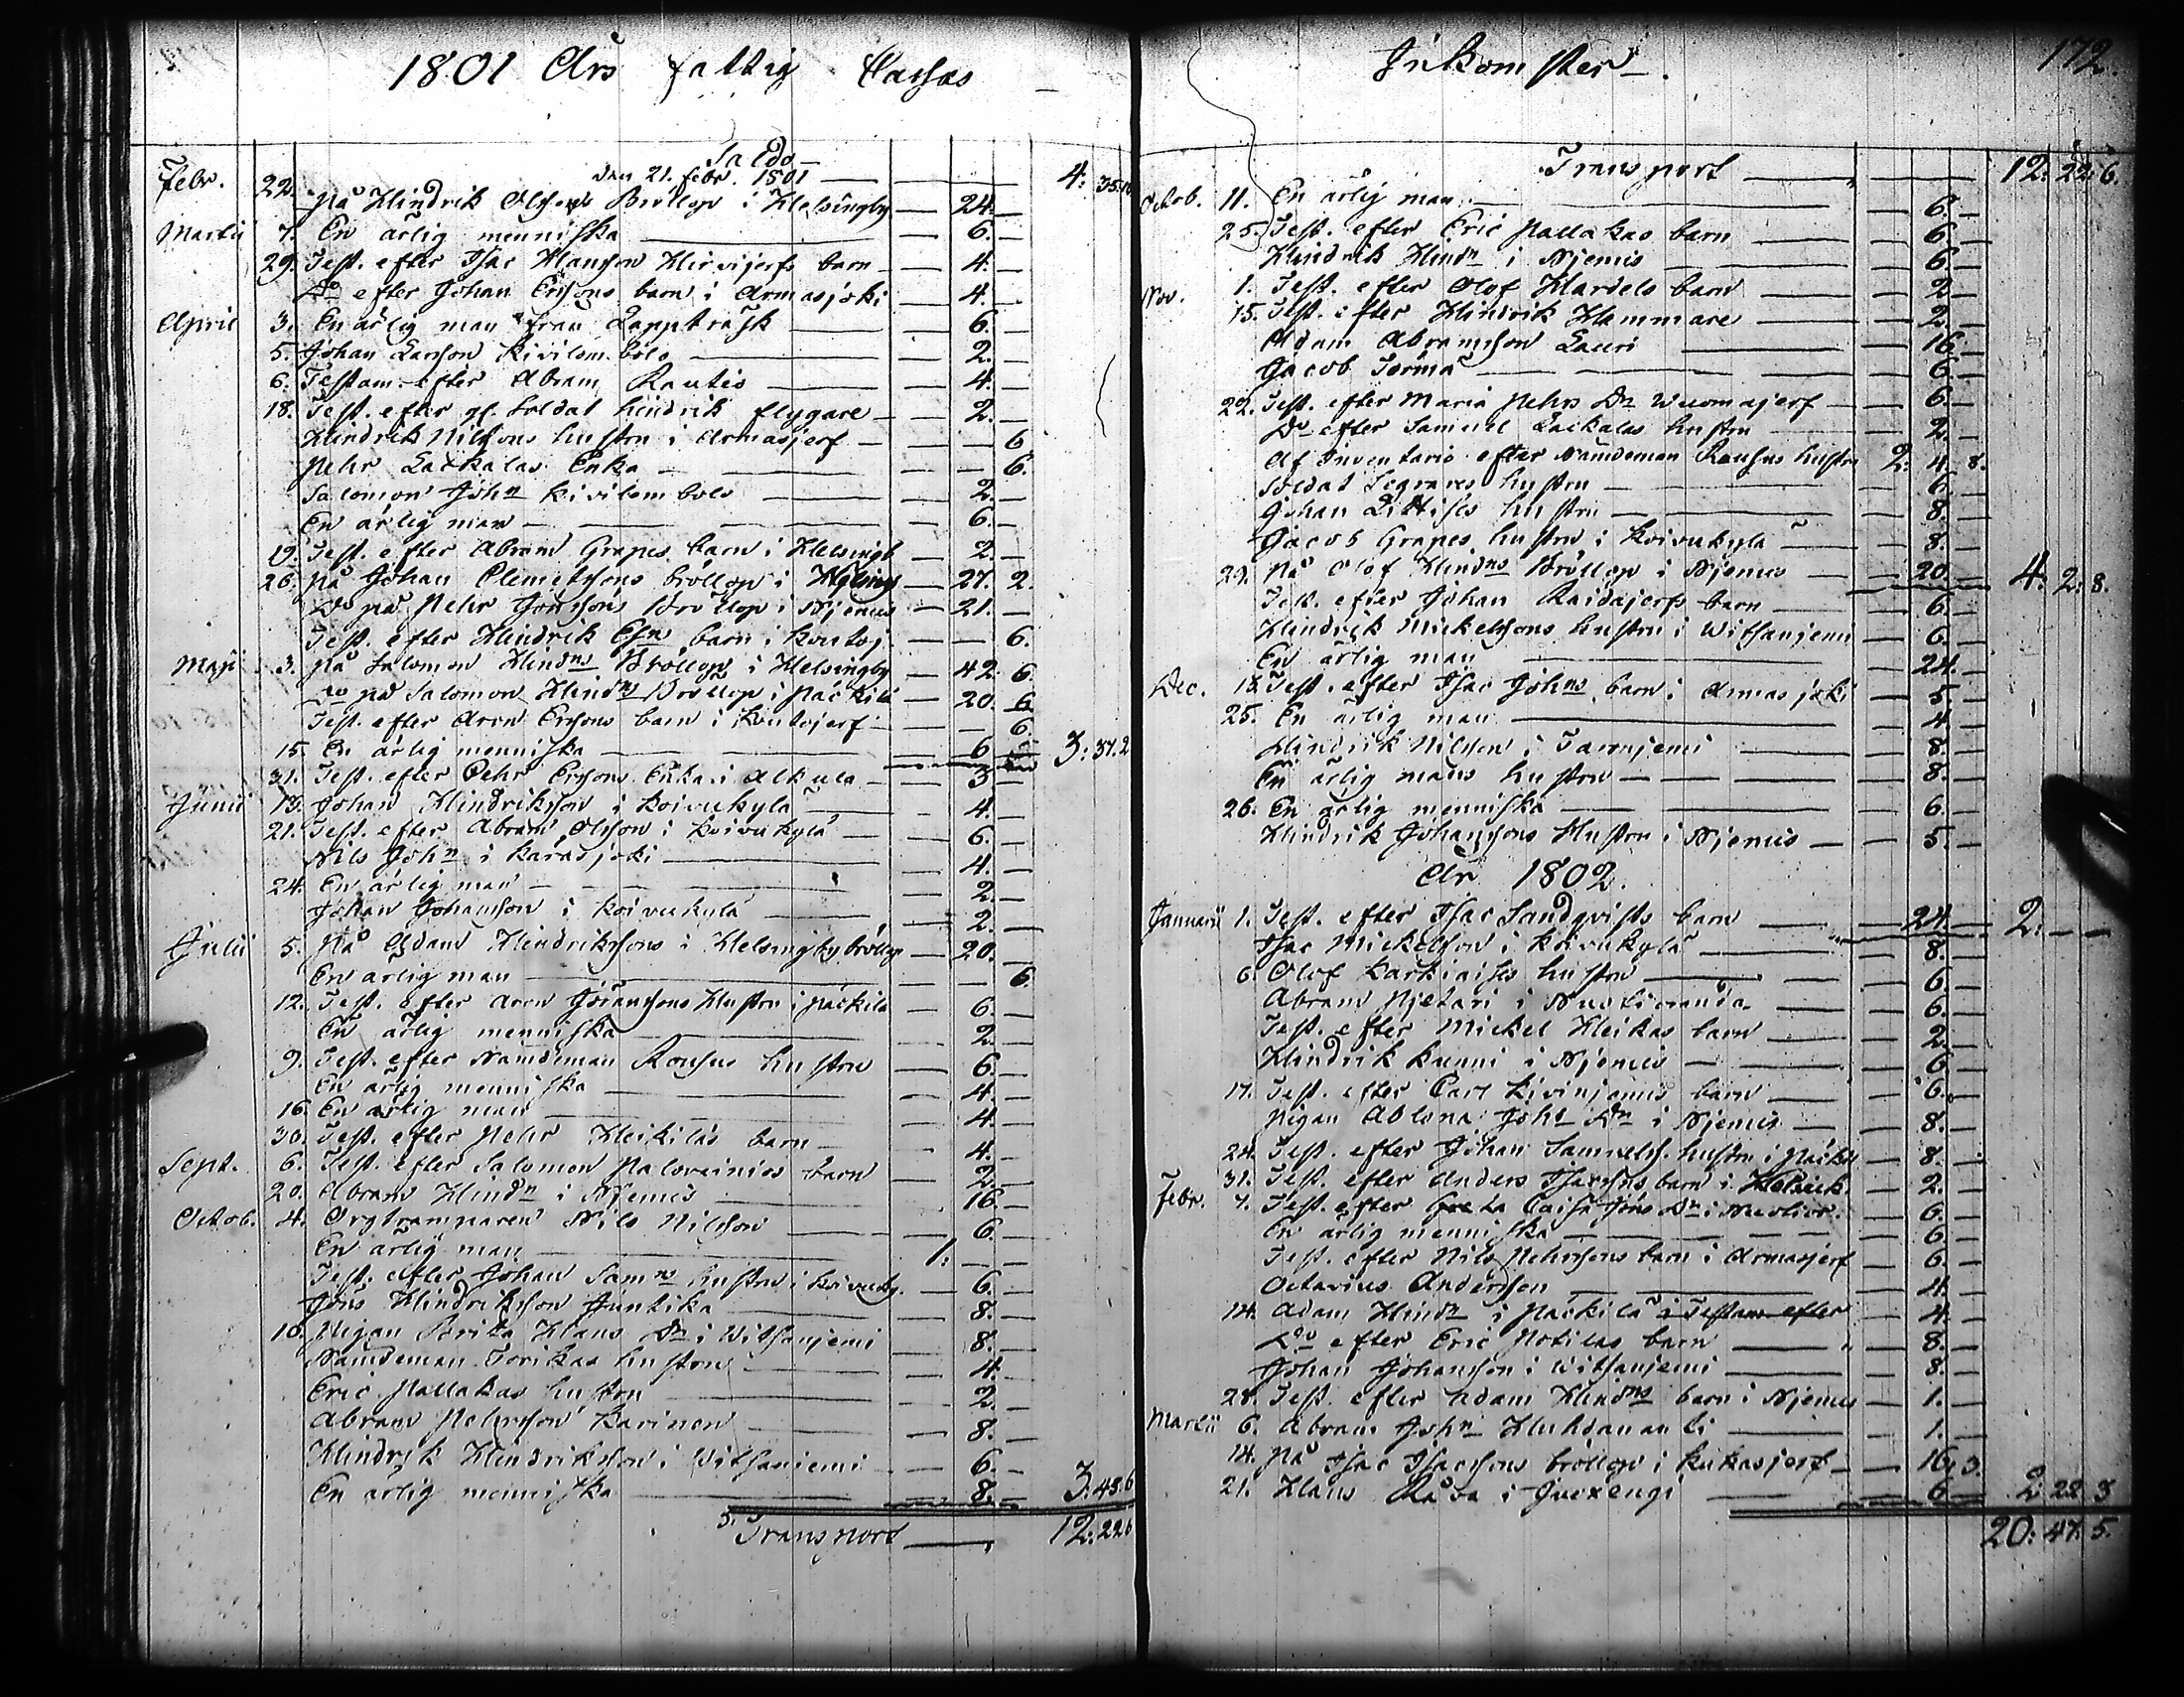 1801 Års fattig Cassas
Saldo
den 21. Febr. 1801 4: 35.10
Febr. 22. På Hindrik Olssons Bröllop i Helsingby 24.
Martii 7. En ärlig menniska 6.
29. Test. efter Isac Hansson Hirvijerfs barn 4.
Do efter Johan Ersons barn i Armasjoki 4.
April 3. En ärlig man från Lappträsk 6.
5. Johan Larsson Kivilombolo 2.
6. Testam. efter Abram Rautio 4.
18. Test. efter gl. Soldat Hindrik flygare 2.
Hindrik Nilssons hustru i Armasjerf 6
Pehr Lackalas Enka 6.
Salomon John Kivilombolo 2.
En ärlig man 6.
19. Test. efter Abram Grapes barn i Helsingb 2
26. På Johan Clemetssons bröllop i Helsing 27. 2.
Do på Pehr Jönssons Bröllop i Njemis 21.
Test. efter Hindrik Esns barn i Kuitoj. 6.
Maji 3. På Salomon Hindns Bröllop i Helsingby 42. 6.
Do på Salomon Hindns Bröllop i Päckilä 20. 6
Test. efter Aron Ersons barn i Kuitojerf 6.
15. En ärlig menniska 6 3: 37.2
31. Test. efter Pehr Ersons Enka i Alkula 3
Junii 13. Johan Hindriksson i Koivukylä 4.
21. Test. efter Abram Olsson i Koivukylä 6.
Nils John i Karasjoki 4.
24. En ärlig man 2.
Johan Johansson i Koivukylä 2.
Julii 5. På Adam Hindrikssons i Helsingby bröllop 20.
En ärlig man 6.
12. Test. efter Aron Göranssons Hustru i Päckilä 6.
En ärlig menniska 2.
9. Test. efter Nämdeman Rousus hustru 6.
En ärlig menniska 4.
16. En ärlig man 4.
30. Test. efter Pehr Heikiläs barn 4.
Sept. 6. Test. efter Salomon Palovainios barn 2.
20. Abram Hindn i Njemis 16.
Octob. 4. Orgtramparen Nils Nilsson 6.
En ärlig man 1:
Test. efter Johan Samns hustru i Koivuky. 6.
Jöns Hindriksson Juntika 8.
10. Pigan Brita Hans Dn i Witsanjemi 8.
Nämdeman Torikas hustru 4.
Eric Pallakas hustru 2.
Abram Pehrsson Karinen 8.
Hindrik Hindriksson i Witsaniemi 6.
En ärlig menniska 8. 3: 48.6
Transport 12: 22 6
Inkomster 172.
Transport 12: 22: 6.
Octob. 11. En ärlig man 6.
25. Test. efter Eric Pallakas barn 6
Hindrik Hindn i Njemis 6.
Nov. 1. Test. efter Olof Hardels barn 2
15. Test. efter Hindrik Hammare 2.
Adam Abramsson Lauri 16.
Jacob Jormä 6.
22. Test. efter Maria Pehrs Dn Wuomajerf 6.
Do efter Samuel Lackalas hustru 2.
Af Inventario efter Nämdeman Rousus hustru 2: 4. 8.
Soldat Segrares hustru 6.
Johan hustru 8.
Jacob Grapes hustru i Koivukylä 8.
29. På Olof Hindns Bröllop i Njemis 20. 4: 2: 8.
Test. efter Johan Raidajerfs barn 6.
Hindrik Mickelssons hustru i Witsanjemi 6.
En ärlig man 24.
Dec. 18. Test. efter Isac Johns barn i Armasjoki 5.
25. En ärlig man 4.
Hindrik Nilsson i 8.
En ärlig mans hustru 8.
26. En ärlig menniska 6.
Hindrik Johanssons Hustru i Njemis 5.
År 1802.
Januarii 1. Test. efter Isac Sandqvists barn 24. 2:
Isac Mickelsson i Koivukylä 8.
6. Olof Karkiaises hustru 6
Abram Pjetari i 6.
Test. efter Mickel Heikas barn 2.
Hindrik Kunni i Njemis 6
17. Test. efter Carl Kivinjemis barn 6.
Pigan Ablona Johs Dn i Njemis 8.
24. Test. efter Johan Samuelss. hustru i Päcki 8.
31. Test. efter Anders Isacsons barn i 2.
Febr. 7. Test. efter Greta Caisa Jöns Dn i 6.
En ärlig menniska 6
Test. efter Nils Pehrssons barn i Armasjerf 6.
Octavius Andersson 4.
14. Adam Hindn i Päckilä i Testam efter 4.
Do efter Eric Potilas barn 8.
Johan Johansson i Witsanjemi 8.
28. Test. efter Adam Hindns barn i Njemis 1.
Martii 6. Abram John Huhdananti 1.
14. På Isac Isacssons bröllop i Kukasjerf 16. 3.
21. Hans Råva i Juoxengi 6 2. 22 3
20: 47. 5.